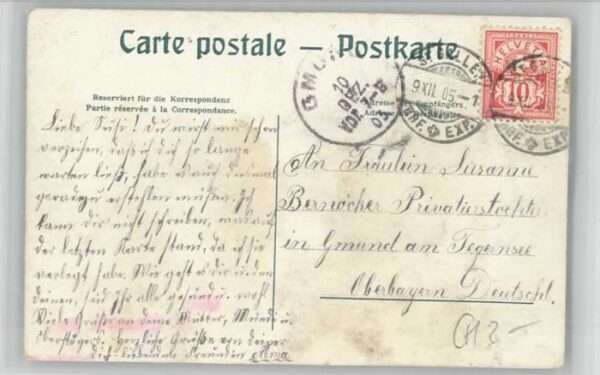 Carte postale — Postkarte
Reserviert für die Korrespondenz
Partie réservée à la Correspondance.
Adresse des Empfängers.
HELVETIA
10
ST. GALLEN
9.XII.05.–1
BRF. EXP.
GMUND
10 DEZ.
VOR. 7-8
05
Liebe Susi! Du mußt mir schon
verzeihen, daß ich dich so lange
warten ließ, habe es auch diesmal
geradezu erstehlen müssen. Ich
kann dir nicht schreiben, was auf
der letzten Karte stand, da ich sie
verlegt habe. Wie geht es dir u. den
deinen, seid Ihr alle gesund u. wohl
Viele Grüße an deine Mutter,
herzliche Grüße von deiner
dich liebenden Freundin Anna
An Fräulein Susanne
Bernöcker Privatierstochter
in Gmund am Tegernsee
Oberbayern Deutschl.
CH 3-